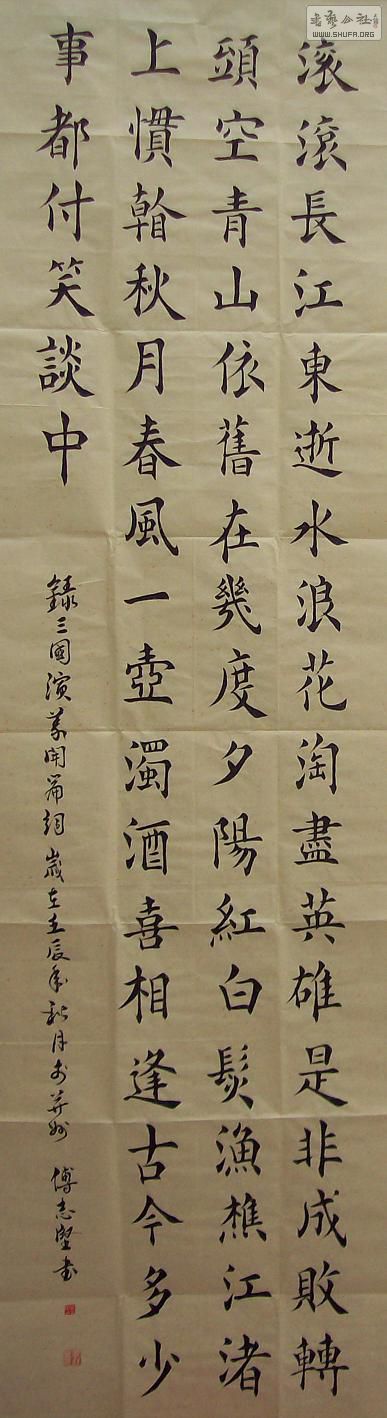 滚滚長江東逝水浪花淘盡英雄是非成敗轉
頭空青山依舊在幾度夕陽紅白髮漁樵江渚
上慣看秋月春風一壺濁酒喜相逢古今多少
事都付笑談中
錄三國演義開篇詞歲在壬辰年秋月於并州 傅志堅書
書藝公社
WWW.SHUFA.ORG